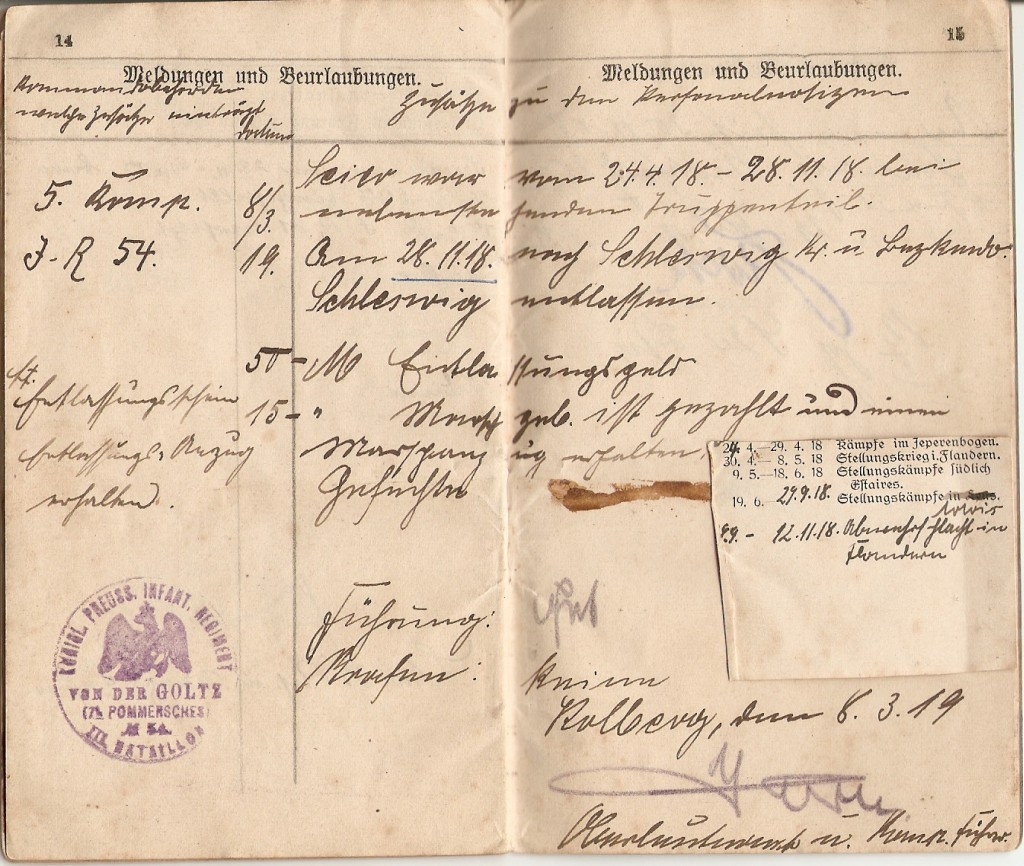 14
Meldungen und Beurlaubungen.
Kommandobehörden
welche Zusätze einträgt
Datum
Zusätze zu den Personalnotizen
15
Meldungen und Beurlaubungen.
5. Komp.
J. R 54.
8/3.
19.
war vom 24.4.18. - 28.11.18. bei
nebenstehenden Truppenteil.
Am 28.11.18. nach Schleswig Kr. u. Bezkmdo.
Schleswig entlassen.
50 - M Entlassungsgeld
15 - " Marschgeb. ist gezahlt und einen
Marschanzug erhalten.
Gefechte
Entlassungsschein
Entlassungs-Anzug
erhalten.
24. 4.— 29. 4. 18 Kämpfe im Jeperenbogen.
30. 4.— 8. 5. 18 Stellungskrieg i. Flandern.
9. 5.—18. 6. 18 Stellungskämpfe südlich
Estaires.
19. 6. - 27.9.18. Stellungskämpfe in
- 12.11.18. Abwehrschlacht in
Flandern
Führung: Gut
Strafen: Keine
Kolberg, den 8.3.19
Oberleutnant u. Komp. Führer.
KÖNIGL. PREUSS. INFANT. REGIMENT
VON DER GOLTZ
(7t. POMMERSCHES)
№ 54.
III. BATAILLON